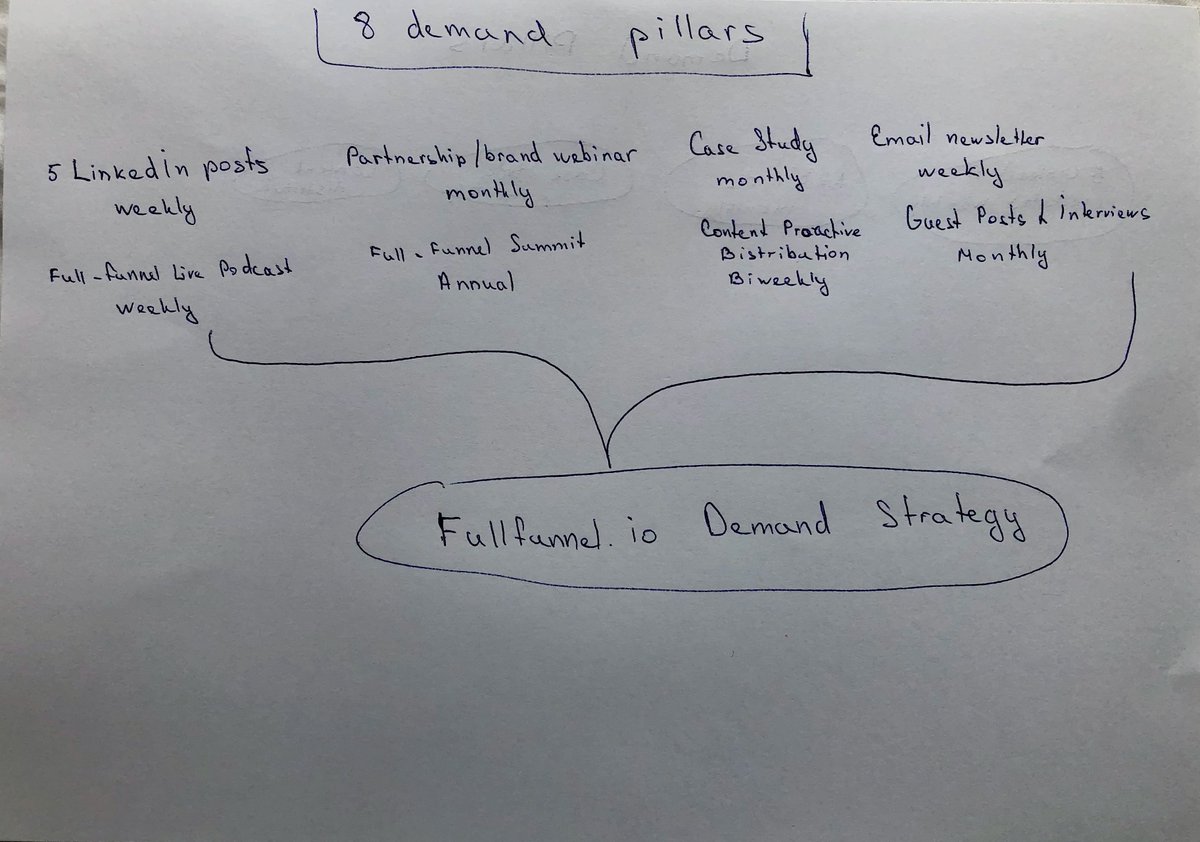 8 demand pillars
5 LinkedIn posts
weekly
Partnership/brand webinar
monthly
Case Study
monthly
Email newsletter
weekly
Full-funnel Live Podcast
weekly
Full-funnel Summit
Annual
Content Proactive
Distribution
Biweekly
Guest Posts & Interviews
Monthly
Fullfunnel.io Demand Strategy